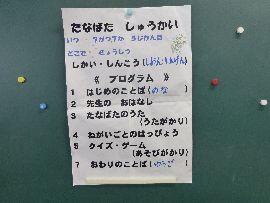 たなばた しゅうかい
いつ 7がつ7か 5じかん目
どこで きょうしつ
しかい・しんこう(
《 プログラム 》
1 はじめのことば(
2 先生の おはなし
3 たなばたのうた
(うたがかり)
4 ねがいごとのはっぴょう
5 クイズ・ゲーム
(あそびがかり)
7 おわりのことば(